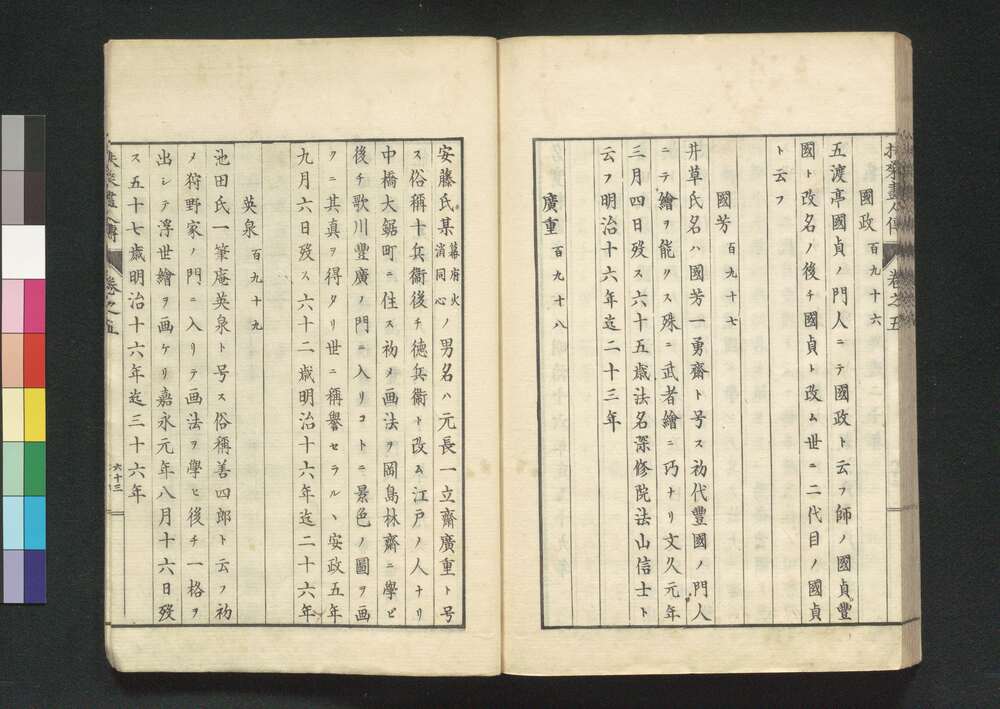 國政 百九十六
五渡亭國貞ノ門人ニテ國政ト云フ師ノ國貞豐
國ト改名ノ後チ國貞ト改ム世ニ二代目ノ國貞
ト云フ
國芳 百九十七
井草氏名ハ國芳一勇齋ト号ス初代豐國ノ門人
ニテ繪ヲ能クス殊ニ武者繪ニ巧ナリ文久元年
三月四日歿ス六十五歳法名深修院法山信士ト
云フ明治十六年迄二十三年
廣重 百九十八
安藤氏某幕府火消同心ノ男名ハ元長一立齋廣重ト号
ス俗稱十兵衞後チ徳兵衞ト改ム江戸ノ人ナリ
中橋大鋸町ニ住ス初メ画法ヲ岡島林齋ニ學ヒ
後チ歌川豐廣ノ門ニ入リコトニ景色ノ圖ヲ画
ヲニ其真ヲ得タリ世ニ稱譽セラルヽ安政五年
九月六日歿ス六十二歳明治十六年迄二十六年
英泉 百九十九
池田氏一筆庵英泉ト号ス俗稱善四郎ト云フ初
メ狩野家ノ門ニ入リテ画法ヲ學ヒ後チ一格ヲ
出シテ浮世繪ヲ画ケリ嘉永元年八月十六日歿
ス五十七歳明治十六年迄三十六年
卷之五
六十三